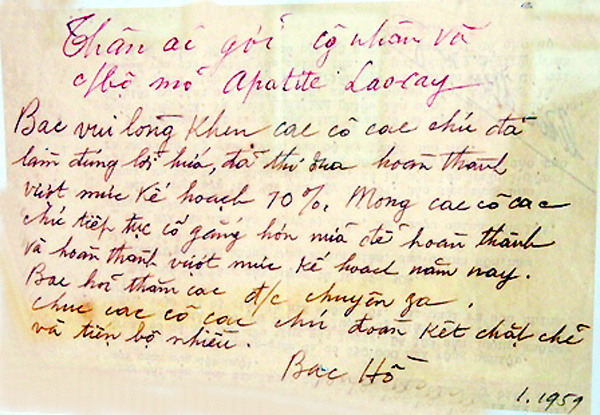 Thân ái gửi cg nhân và
c/bộ mỏ Apatite Laocay
Bác vui lòng khen các cô các chú đã
làm đúng lời hứa, đã thi đua hoàn thành
vượt mức kế hoạch 70%. Mong các cô các
chú tiếp tục cố gắng hơn nữa để hoàn thành
và hoàn thành vượt mức kế hoạch năm nay.
Bác hỏi thăm các đ/c chuyên za.
Chúc các cô các chú đoàn kết chặt chẽ
và tiến bộ nhiều.
Bác Hồ
1.1959